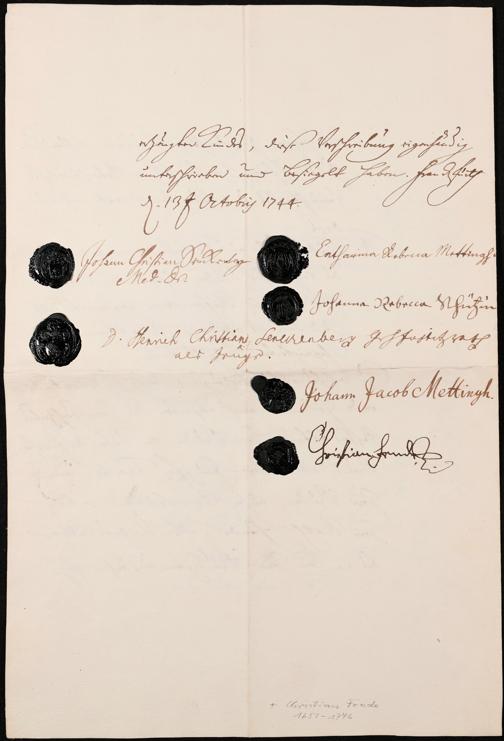 erzeugten Kindes, diese Verschreibung eigenhändig
unterschrieben und besiegelt haben.
d. 13 Octobris 1744.
Johann Christian Senckenberg
Med. Dr.
Catharina Rebecca Mettingh
Johanna Rebecca
D. Henrich Christian Senckenberg
als Zeuge.
Johann Jacob Mettingh.
Christian Fende
+ Christian Fende
1651-1746